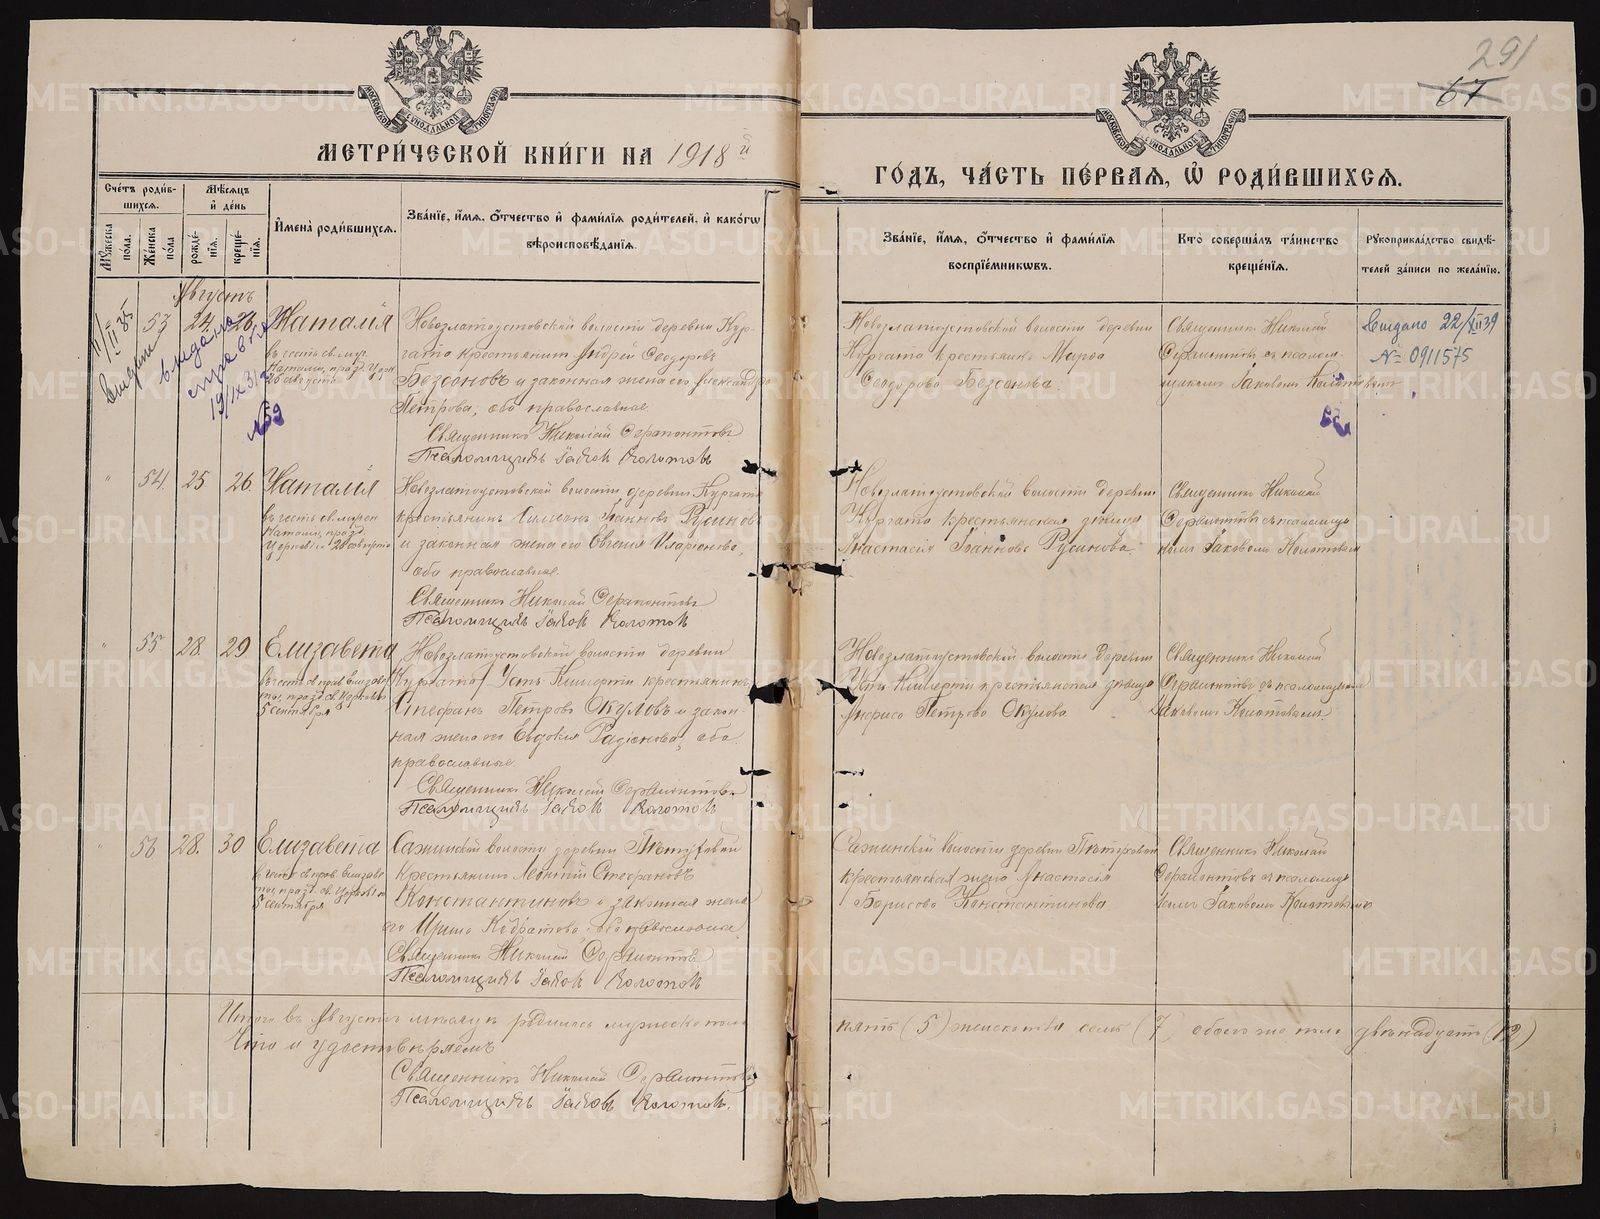 291
67
МЕТРИ́ЧЕСКОЙ КНИ́ГИ НА 1918 й
ГО́ДЪ, ЧА́СТЬ ПЕ́РВАЯ, Ѡ РОДИ́ВШИХСЯ.
Сче́тъ роди́в-
шихся.
Мѣ́сяцъ
и де́нь
Мꙋ́жеска по́ла.
Же́нска по́ла
рожде́-
нїя.
креще-
нїя.
И҆мена̀ роди́вшихся.
Зва́нїе, и҆́мя, ѻ҆́тчество и҆ фами́лїѧ роди́телей, и҆ како́гѡ
вѣроисповѣ́данїя.
Зва́нїе, и҆́мя, ѻ҆́тчество и҆ фами́лїѧ
воспрїе́мникѡвъ.
Кто̀ соверша́лъ та́инство
креще́нїя.
Рꙋкоприкла́дство свидѣ́-
телей за́писи по жела́нїю.
Августъ
53 24. 26. Наталія
въ честь св. муч.
Наталіи, празд. Церк.
26 августа
Новозлатоустовской волости деревни Кур-
гата крестьянинъ Андрей Ѳеодоровъ
Безсоновъ и законная жена его Александра
Петрова, оба православные.
Священникъ Николай Серапонтовъ
Псаломщикъ Іаковъ Колотовъ
Новозлатоустовской волости деревни
Кургата крестьянка Марѳа
Ѳеодорова Безсонова.
Священникъ Николай
Серапонтовъ съ псалом-
щикомъ Іаковомъ Колотовымъ
Выдано 22/XII 39
№ 0911575
11/III 35
выдана
справка
19/IX 31 г.
№59
" 54. 25 26. Наталія
въ честь св. мучен.
Наталіи, празд.
Церковью 26 августа
Новозлатоустовской волости деревни Кургата
крестьянинъ Симеонъ Іоанновъ Русиновъ
и законная жена его Евгенія Иларіонова,
оба православные.
Священникъ Николай Серапонтовъ
Псаломщикъ Іаковъ Колотовъ
Новозлатоустовской волости деревни
Кургата крестьянская дѣвица
Анастасія Іоаннова Русинова.
Священникъ Николай
Серапонтовъ съ псаломщи-
комъ Іаковомъ Колотовымъ
" 55 28. 29 Елизавета
въ честь св. прав. Елизаве-
ты, празд. св. Церковью
5 сентября
Новозлатоустовской волости деревни
Усть Кишерти крестьянинъ
Стефанъ Петровъ Окуловъ и закон-
ная жена его Евдокія Радіонова, оба
православные.
Священникъ Николай Серапонтовъ
Псаломщикъ Іаковъ Колотовъ
Новозлатоустовской волости деревни
Усть Кишерти крестьянская дѣвица
Петрова Окулова
Священникъ Николай
Серапонтовъ съ псаломщикомъ
Іаковомъ Колотовымъ.
" 56 28. 30 Елизавета
въ честь св. прав. Елизаве-
ты, празд. св. Церковью
5 сентября
Сажинской волости деревни Пѣтуховки
крестьянинъ Стефановъ
Константиновъ и законная жена
его Ирина Кодратова, оба православные.
Священникъ Николай Серапонтовъ
Псаломщикъ Іаковъ Колотовъ
Сажинской волости деревни Пѣтуховки
крестьянская жена Анастасія
Борисова Константинова
Священникъ Николай
Серапонтовъ съ псаломщи-
комъ Іаковомъ Колотовымъ
Итого въ Августѣ мѣсяцѣ родилось мужеска пола
пять (5) женска пола семь (7) обоего же пола двѣнадцать (12)
Что и удостовѣряемъ
Священникъ Николай Серапонтовъ
Псаломщикъ Іаковъ Колотовъ.
METRIKI.GASO-URAL.RU